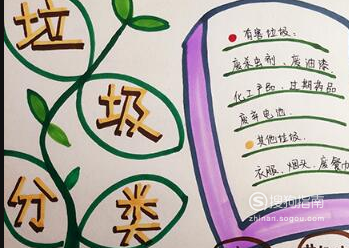 垃
圾
分
类
有害垃圾:
废杀虫剂、废油漆
化工产品、过期药品
废弃电池.
其他垃圾.
衣服、烟头、废餐巾
搜狗指南
zhinan.sogou.com